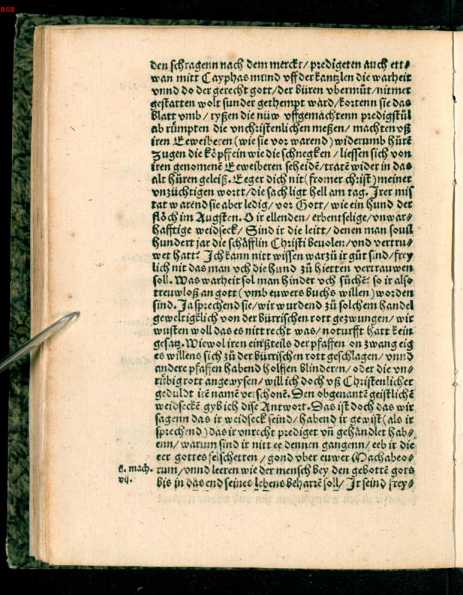 den schragenn nach dem merckt/ predigeten auch ett⸗
wan mitt Cayphas mund vff der kantzlen die warheit
vnnd do der gerecht gott/ der büren vbermüt/ nit met
gestatten wolt sunder gethempt ward/ kortenn sie das
blatt vmb/ ryßen die nüw vffgemachtenn predigstül
ab rümpten die vnchristenlichen meßen/ machten vß
iren Eeweiberen (wie sie vor warend) widerumb hüre
zugen die köpff ein wie die schnegken/ liessen sich von
iren genomene Eeweiberen scheidē/ tratē widet in das
alt hüren geleiß. Erger dich nit (fromer christ) meiner
vnzüchtigen wortt/ die sach ligt hell am tag. Irer mis
tat warend sie aber ledig/ vor Gott/ wie ein hund der
flöch im Augsten. O ir ellenden/ erbentselige/ vnwar⸗
hafftige weidseck/ Sind ir die leitt/ denen man souil
hundert jar die schäfflin Christi beuolen/ vnd vertru⸗
wet hatt? Ich kann nitt wissen war zů ir gůt sind/ frey
lich nit das man vch die hund zů hietten vertrauwen
soll. Was warheit sol man hinder vch sůchē: so ir also
treuwloß an gott (vmb euwers buchs willen) worden
sind. Ja sprechend sie/ wir wurdend zů solchem handel
geweltigklich von der bürischen rott gezwungen/ wir
wusten woll das es nitt recht was/ noturfft hatt kein
gesatz. Wiewol iren eins teils der pfaffen on zwang eig
es willens sich zů der bürrischen rott geschlagen/ vnnd
andere pfaffen habend holffen blinderen/ oder die vn⸗
rübig rott angewysen/ will ich doch vß Christenlicher
geduldt irē namē verschonē. Den obgenantē geistlichē
weidseckē gyb ich dise Antwort. Das ist doch das wir
sagenn das ir weidseck seind/ habend ir gewist (als ir
sprechend) das ir vnrecht prediget vñ gehandlet hab⸗
enn/ warum sind ir nitt ee dennen gangenn/ eeb ir die
eer gottes felschetten/ gond vber euwer Machabeo⸗
rum/ vnnd leeren wie der mensch bey den gebottē gots
bis in das end seines lebens beharrē soll/ Ir seind frey⸗
2. mach.
vij.